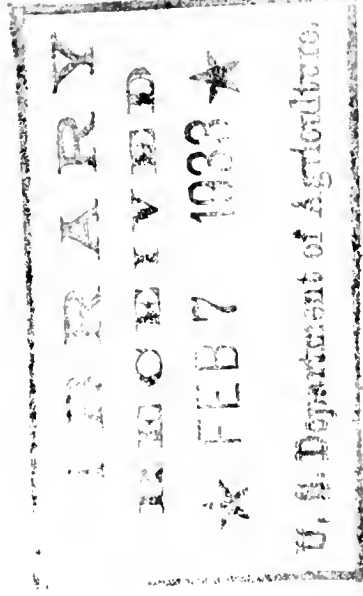 LIBRARY
RECEIVED
★ FEB 7 1933 ★
U. S. Department of Agriculture.